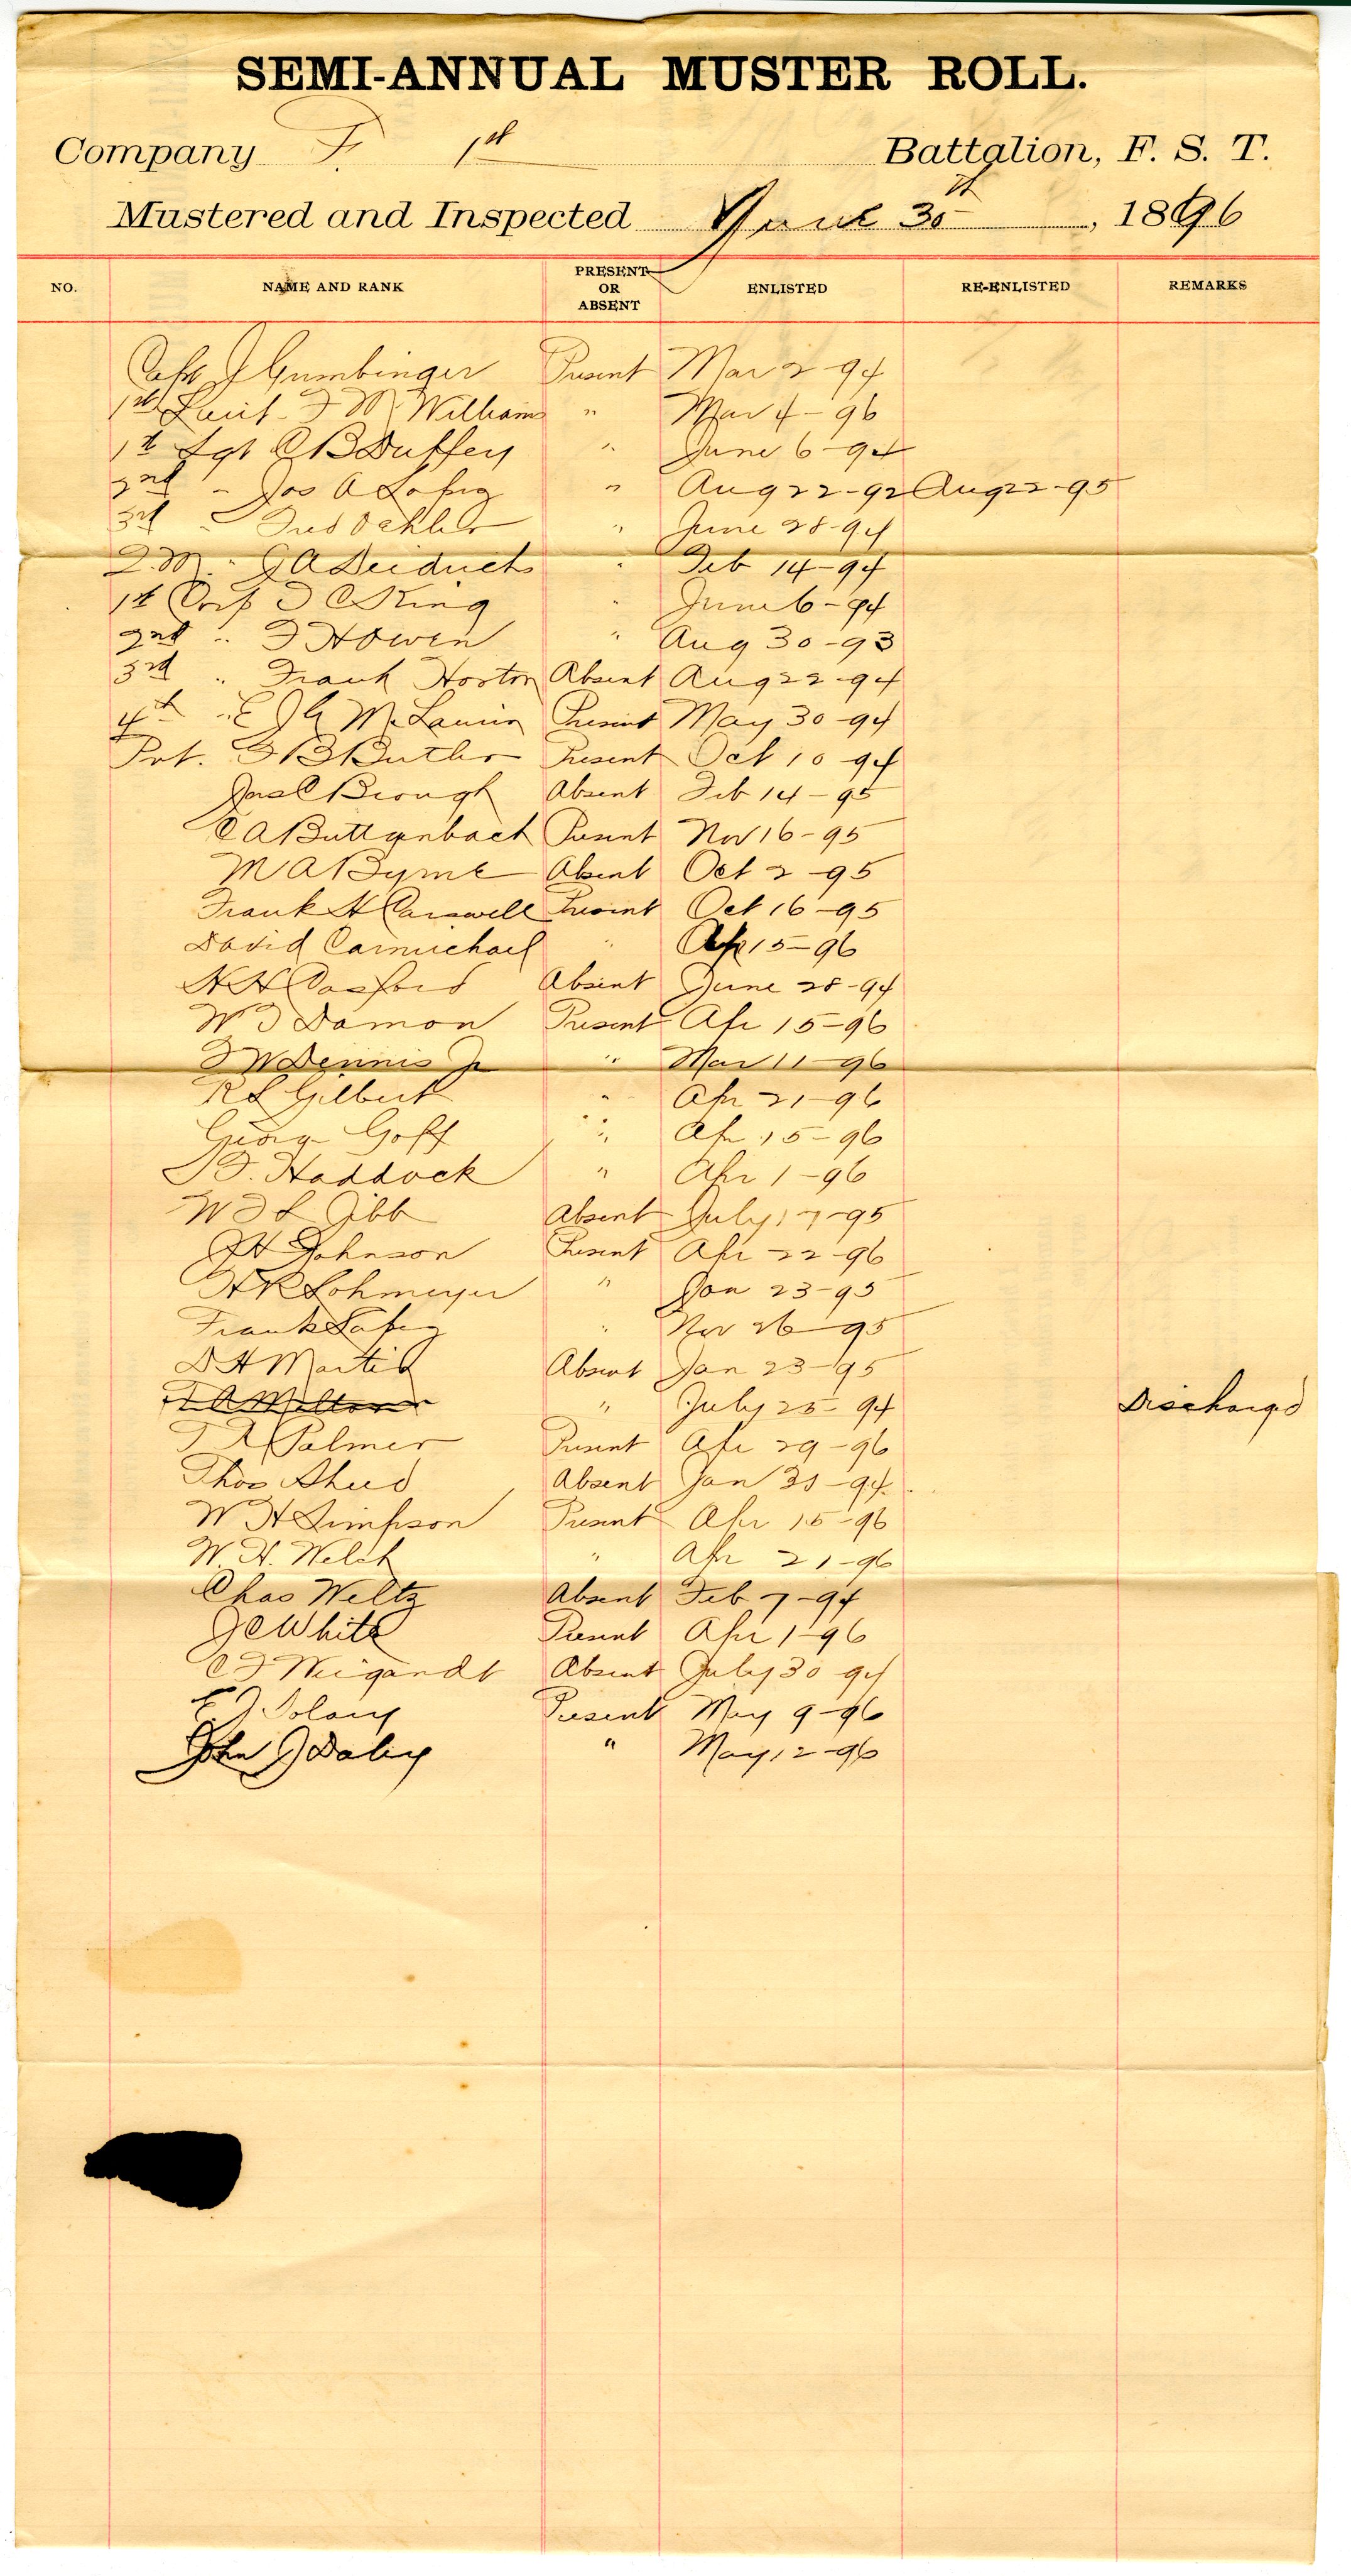 SEMI-ANNUAL MUSTER ROLL.
Company F. 1st Battalion, F. S. T.
Mustered and Inspected June 30th, 1896
NO. NAME AND RANK PRESENT OR ABSENT ENLISTED RE-ENLISTED REMARKS
Capt J Gumbinger Present Mar 2 - 94
1st Lieut - F M Williams " Mar 4 - 96
1st Sgt C B Duffey " June 6 - 94
2nd " Jos A Lopez " Aug 22 - 92 Aug 22 - 95
3rd " Fred Oehler " June 28 - 94
Q.M. " J A Deidrich " Feb 14 - 94
1st Corp F C King " June 6 - 94
2nd " F H Owen " Aug 30 - 93
3rd " Frank Horton Absent Aug 22 - 94
4th " E J G McLaurin Present May 30 - 94
Pvt. G B Butler Present Oct 10 - 94
Jas C Brough Absent Feb 14 - 95
C A Buttenbach Present Nov 16 - 95
M A Byrne Absent Oct 2 - 95
Frank H Carswell Present Oct 16 - 95
David Carmichael " Apr 15 - 96
H H Absent June 28 - 94
W F Damon Present Apr 15 - 96
F W Dennis Jr " Mar 11 - 96
R L Gilbert " Apr 21 - 96
George Goff " Apr 15 - 96
F. Haddock " Apr 1 - 96
W F L Jibb Absent July 17 - 95
J H Johnson Present Apr 22 - 96
H R Lohmeyer " Jan 23 - 95
Frank Lopez " Nov 26 - 95
D H Martin Absent Jan 23 - 95
F A Melton " July 25 - 94 Discharged
T A Palmer Present Apr 29 - 96
Thos Shed Absent Jan 31 - 94
W H Simpson Present Apr 15 - 96
W. H. Welch " Apr 21 - 96
Chas Weltz Absent Feb 7 - 94
J C White Present Apr 1 - 96
C F Weigandt Absent July 30 94
E. J Solary Present May 9 - 96
John J Daley " May 12 - 96